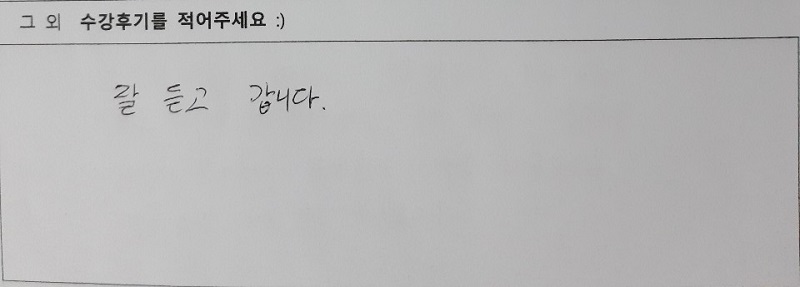 그 외 수강후기를 적어주세요 :)
잘 듣고 갑니다.